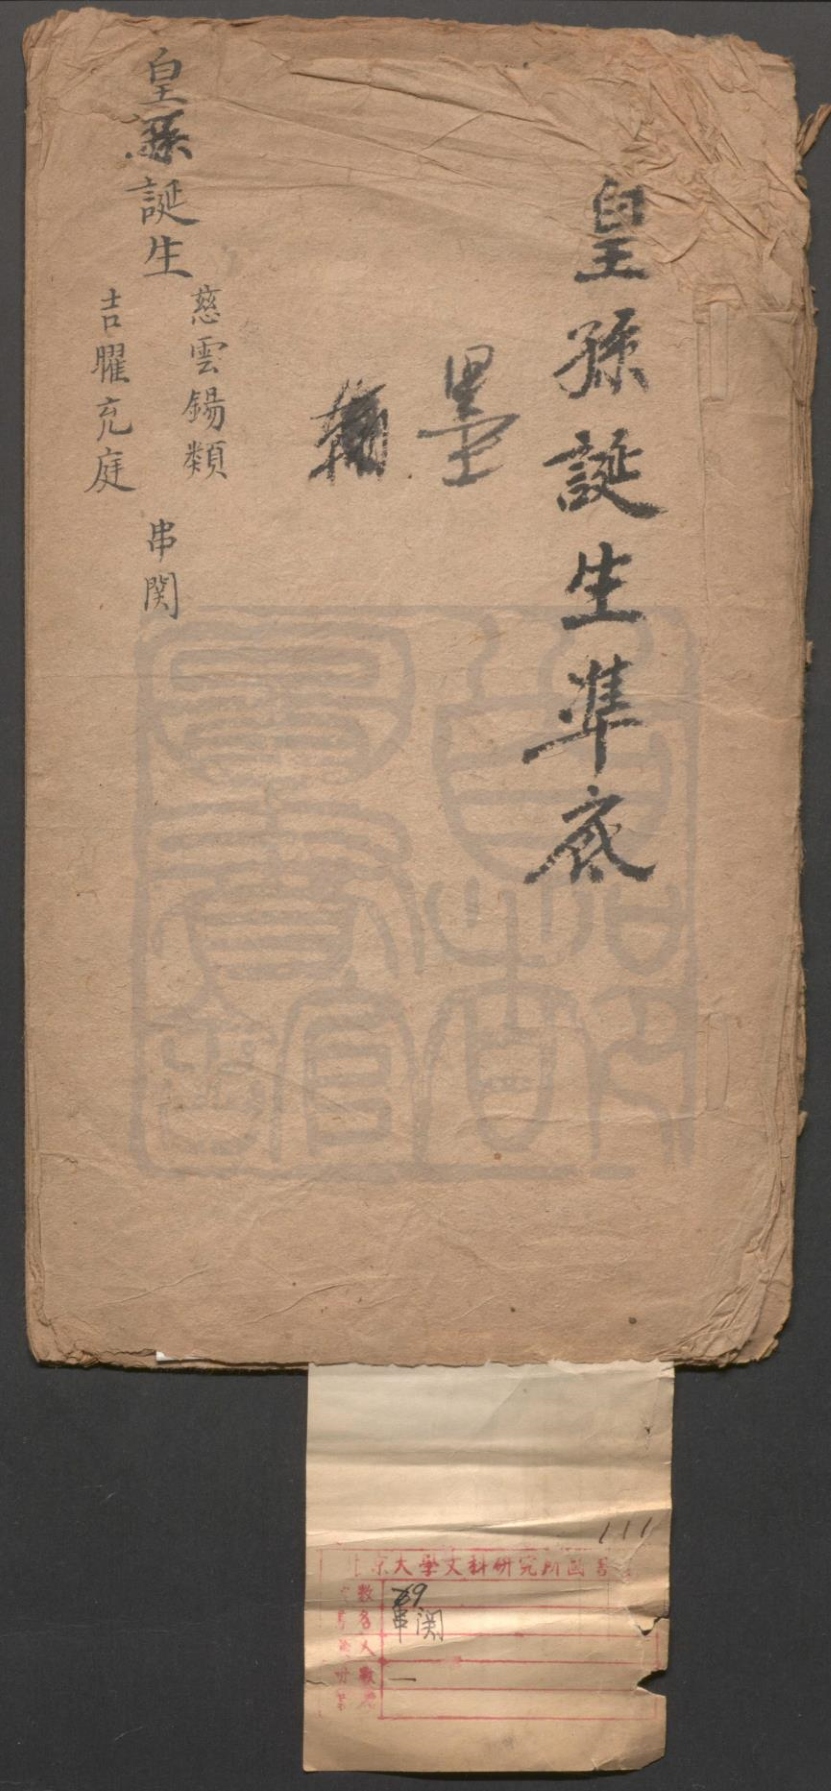 皇孫誕生準底
墨
皇孫誕生
慈雲錫類
吉曜充庭
串関
111
京大學文科研究所圖書
79
串関
一